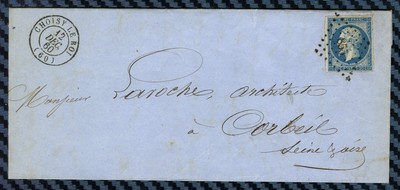 CHOISY-LE-ROI
12
DEC
60
(60)
Monsieur Laroche, architecte
à Corbeil
Seine & oise